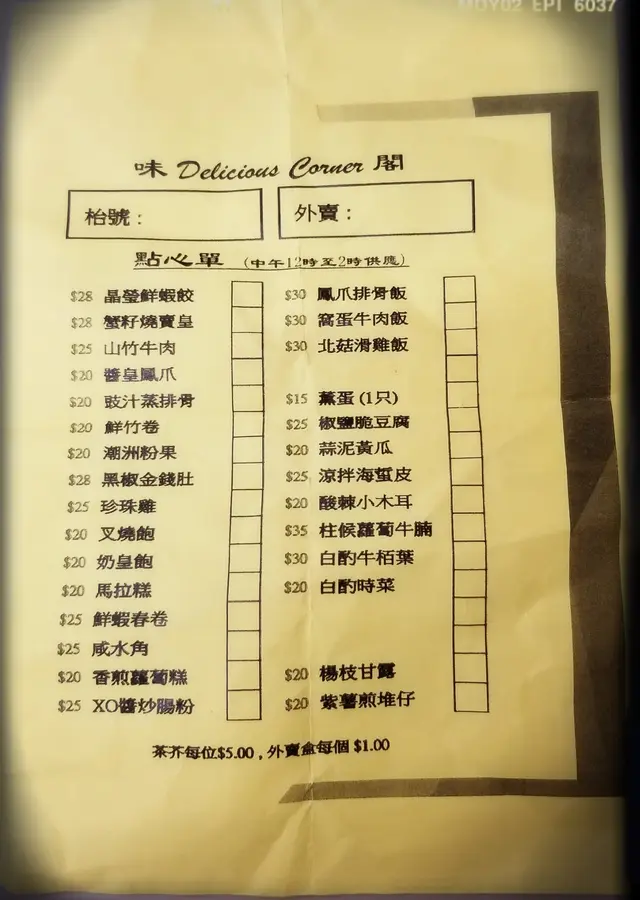 MOY02 EPI 6037
味 Delicious Corner 閣
枱號：
外賣：
點心單 (中午12時至2時供應)
$28 晶瑩鮮蝦餃
$28 蟹籽燒賣皇
$25 山竹牛肉
$20 醬皇鳳爪
$20 豉汁蒸排骨
$20 鮮竹卷
$20 潮洲粉果
$28 黑椒金錢肚
$25 珍珠雞
$20 叉燒飽
$20 奶皇飽
$20 馬拉糕
$25 鮮蝦春卷
$25 咸水角
$20 香煎蘿蔔糕
$25 XO醬炒腸粉
$30 鳳爪排骨飯
$30 窩蛋牛肉飯
$30 北菇滑雞飯
$15 薰蛋 (1只)
$25 椒鹽脆豆腐
$20 蒜泥黃瓜
$25 涼拌海蜇皮
$20 酸辣小木耳
$35 柱候蘿蔔牛腩
$30 白酌牛栢葉
$20 白酌時菜
$20 楊枝甘露
$20 紫薯煎堆仔
茶芥每位$5.00，外賣盒每個 $1.00